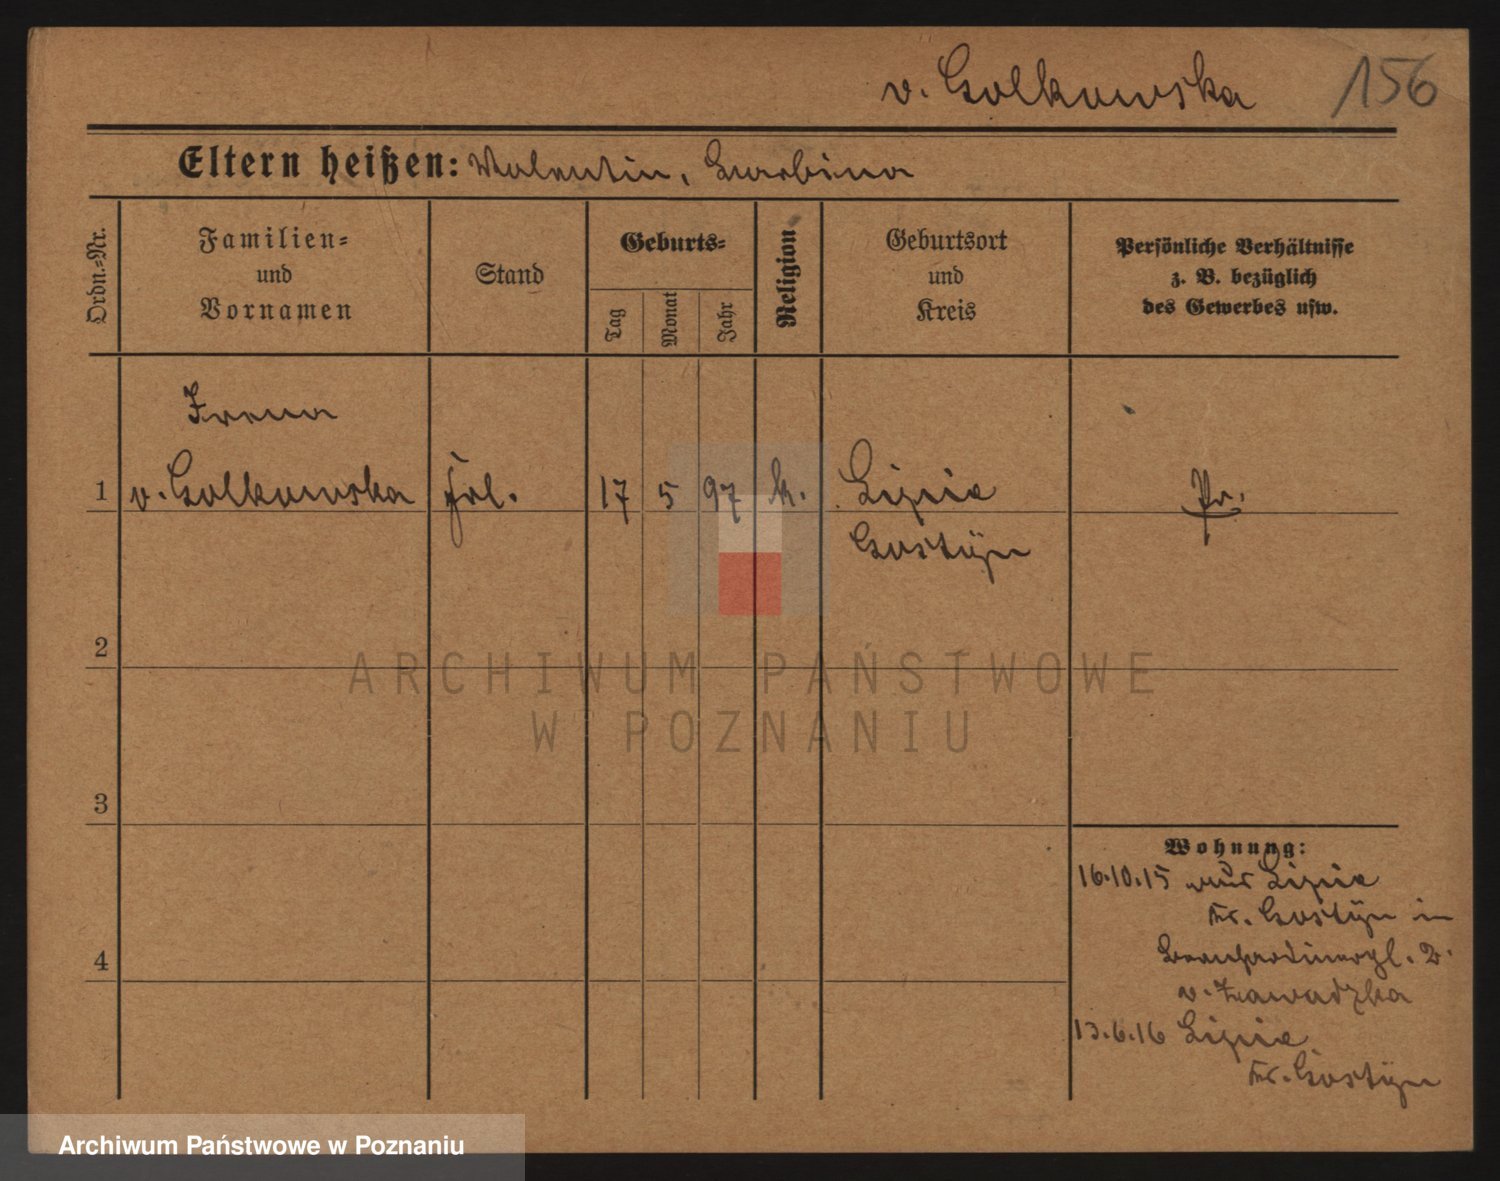 v. Golkowska 156
Eltern heißen: Valentin, Barbina
Ordn.-Nr.
Familien-
und
Vornamen
Stand
Geburts-
Tag
Monat
Jahr
Religion
Geburtsort
und
Kreis
Persönliche Verhältnisse
z. B. bezüglich
des Gewerbes usw.
Irena
1 v. Golkowska Frl. 17 5 97 k. Lipie Pr.
Gostÿn
2
3
4
Wohnung:
16.10.15 aus Lipie
Kr. Gostÿn in
Bernhardinerpl. 2.
v. Zawadzka
13.6.16 Lipie
Kr. Gostÿn
ARCHIWUM PAŃSTWOWE
W POZNANIU
Archiwum Państwowe w Poznaniu